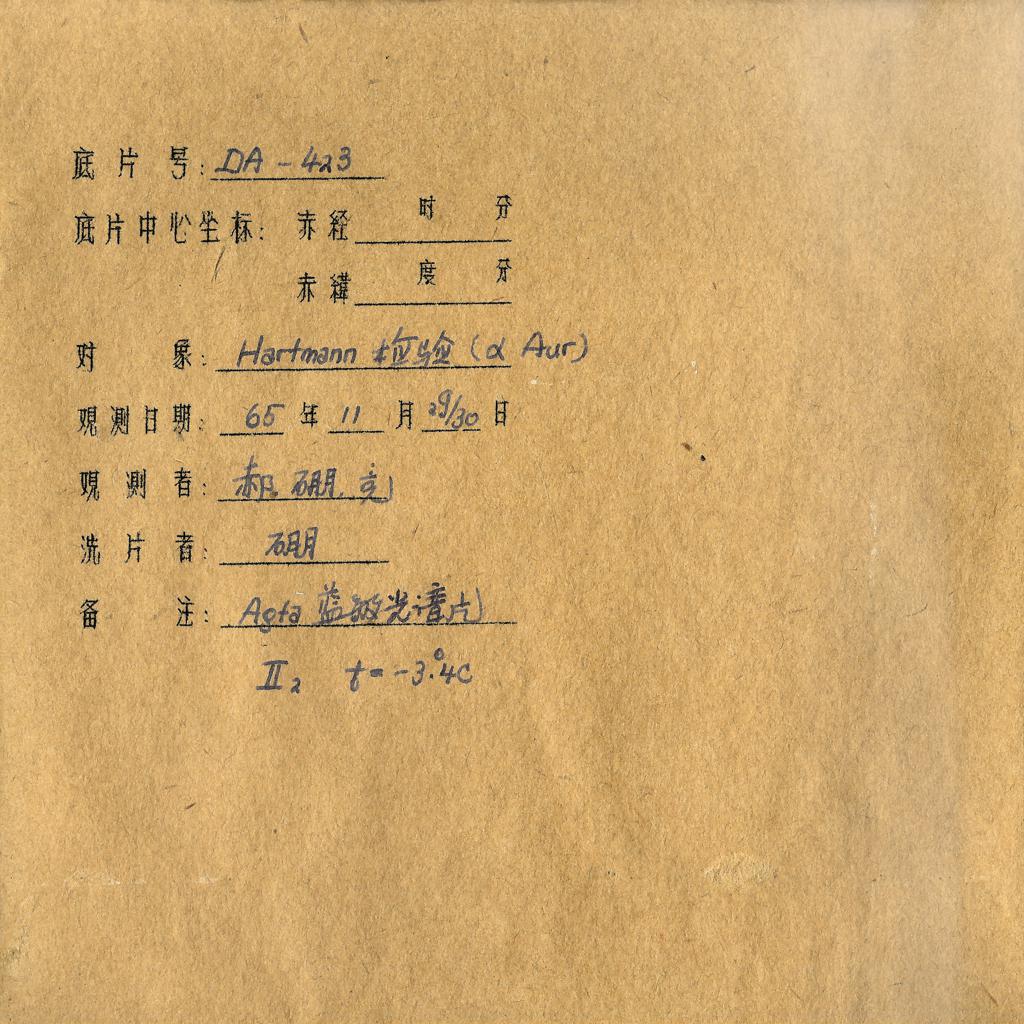 底片号: DA-423
底片中心坐标: 赤经 时 分
赤緯 度 分
对象: Hartmann 检验(α Aur)
观测日期: 65年11月29/30日
观测者: 郝. 硼. 亮
洗片者: 硼
备注: Agfa 蓝敏光谱片
II₂ t=-3°.4C